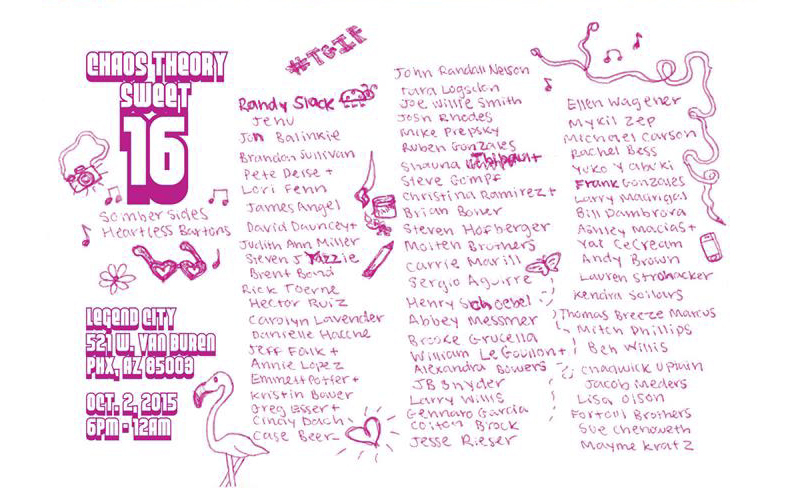 CHAOS THEORY
SWEET
16
Somber Sides
Heartless Bastons
LEGEND CITY
521 W. VAN BUREN
PHX, AZ 85003
OCT. 2, 2015
6PM - 12AM
#TGIF
Randy Slack
Jenu
Jon Balinkie
Brandon Sullivan
Pete Deise +
Lori Fenn
James Angel
David Dauncey+
Judith Ann Miller
Steven J Yazzie
Brent Bond
Rick Toerne
Hector Ruiz
Carolyn Lavender
Danielle Hacche
Jeff Falk +
Annie Lopez
Emmett Potter +
Kristin Bauer
Greg Esser +
Cindy Dach
Case Beer
John Randall Nelson
Tara Logsdon
Joe Willie Smith
Josh Rhodes
Mike Prepsky
Ruben Gonzales
Shawna Thibault
Steve Gompf
Christina Ramirez +
Brian Boner
Steven Hofberger
Molten Brothers
Carrie Marill
Sergio Aguirre
Henry Schoebel
Abbey Messmer
Brooke Grucella
William LeGoullon +
Alexandra Bowers
JB Snyder
Larry Willis
Gennaro Garcia
Colton Brock
Jesse Rieser
Ellen Wagener
Mykil Zep
Michael Carson
Rachel Bess
Yuko Yabuki
Frank Gonzales
Larry Madrigal
Bill Dambrova
Ashley Macias +
Yai CeCream
Andy Brown
Lauren Strohacker
Kendra Sollars
Thomas Breeze Marcus
Mitch Phillips
Ben Willis
Chadwick Uptain
Jacob Meders
Lisa Olson
Fortoul Brothers
Sue Chenoweth
Mayme Kratz